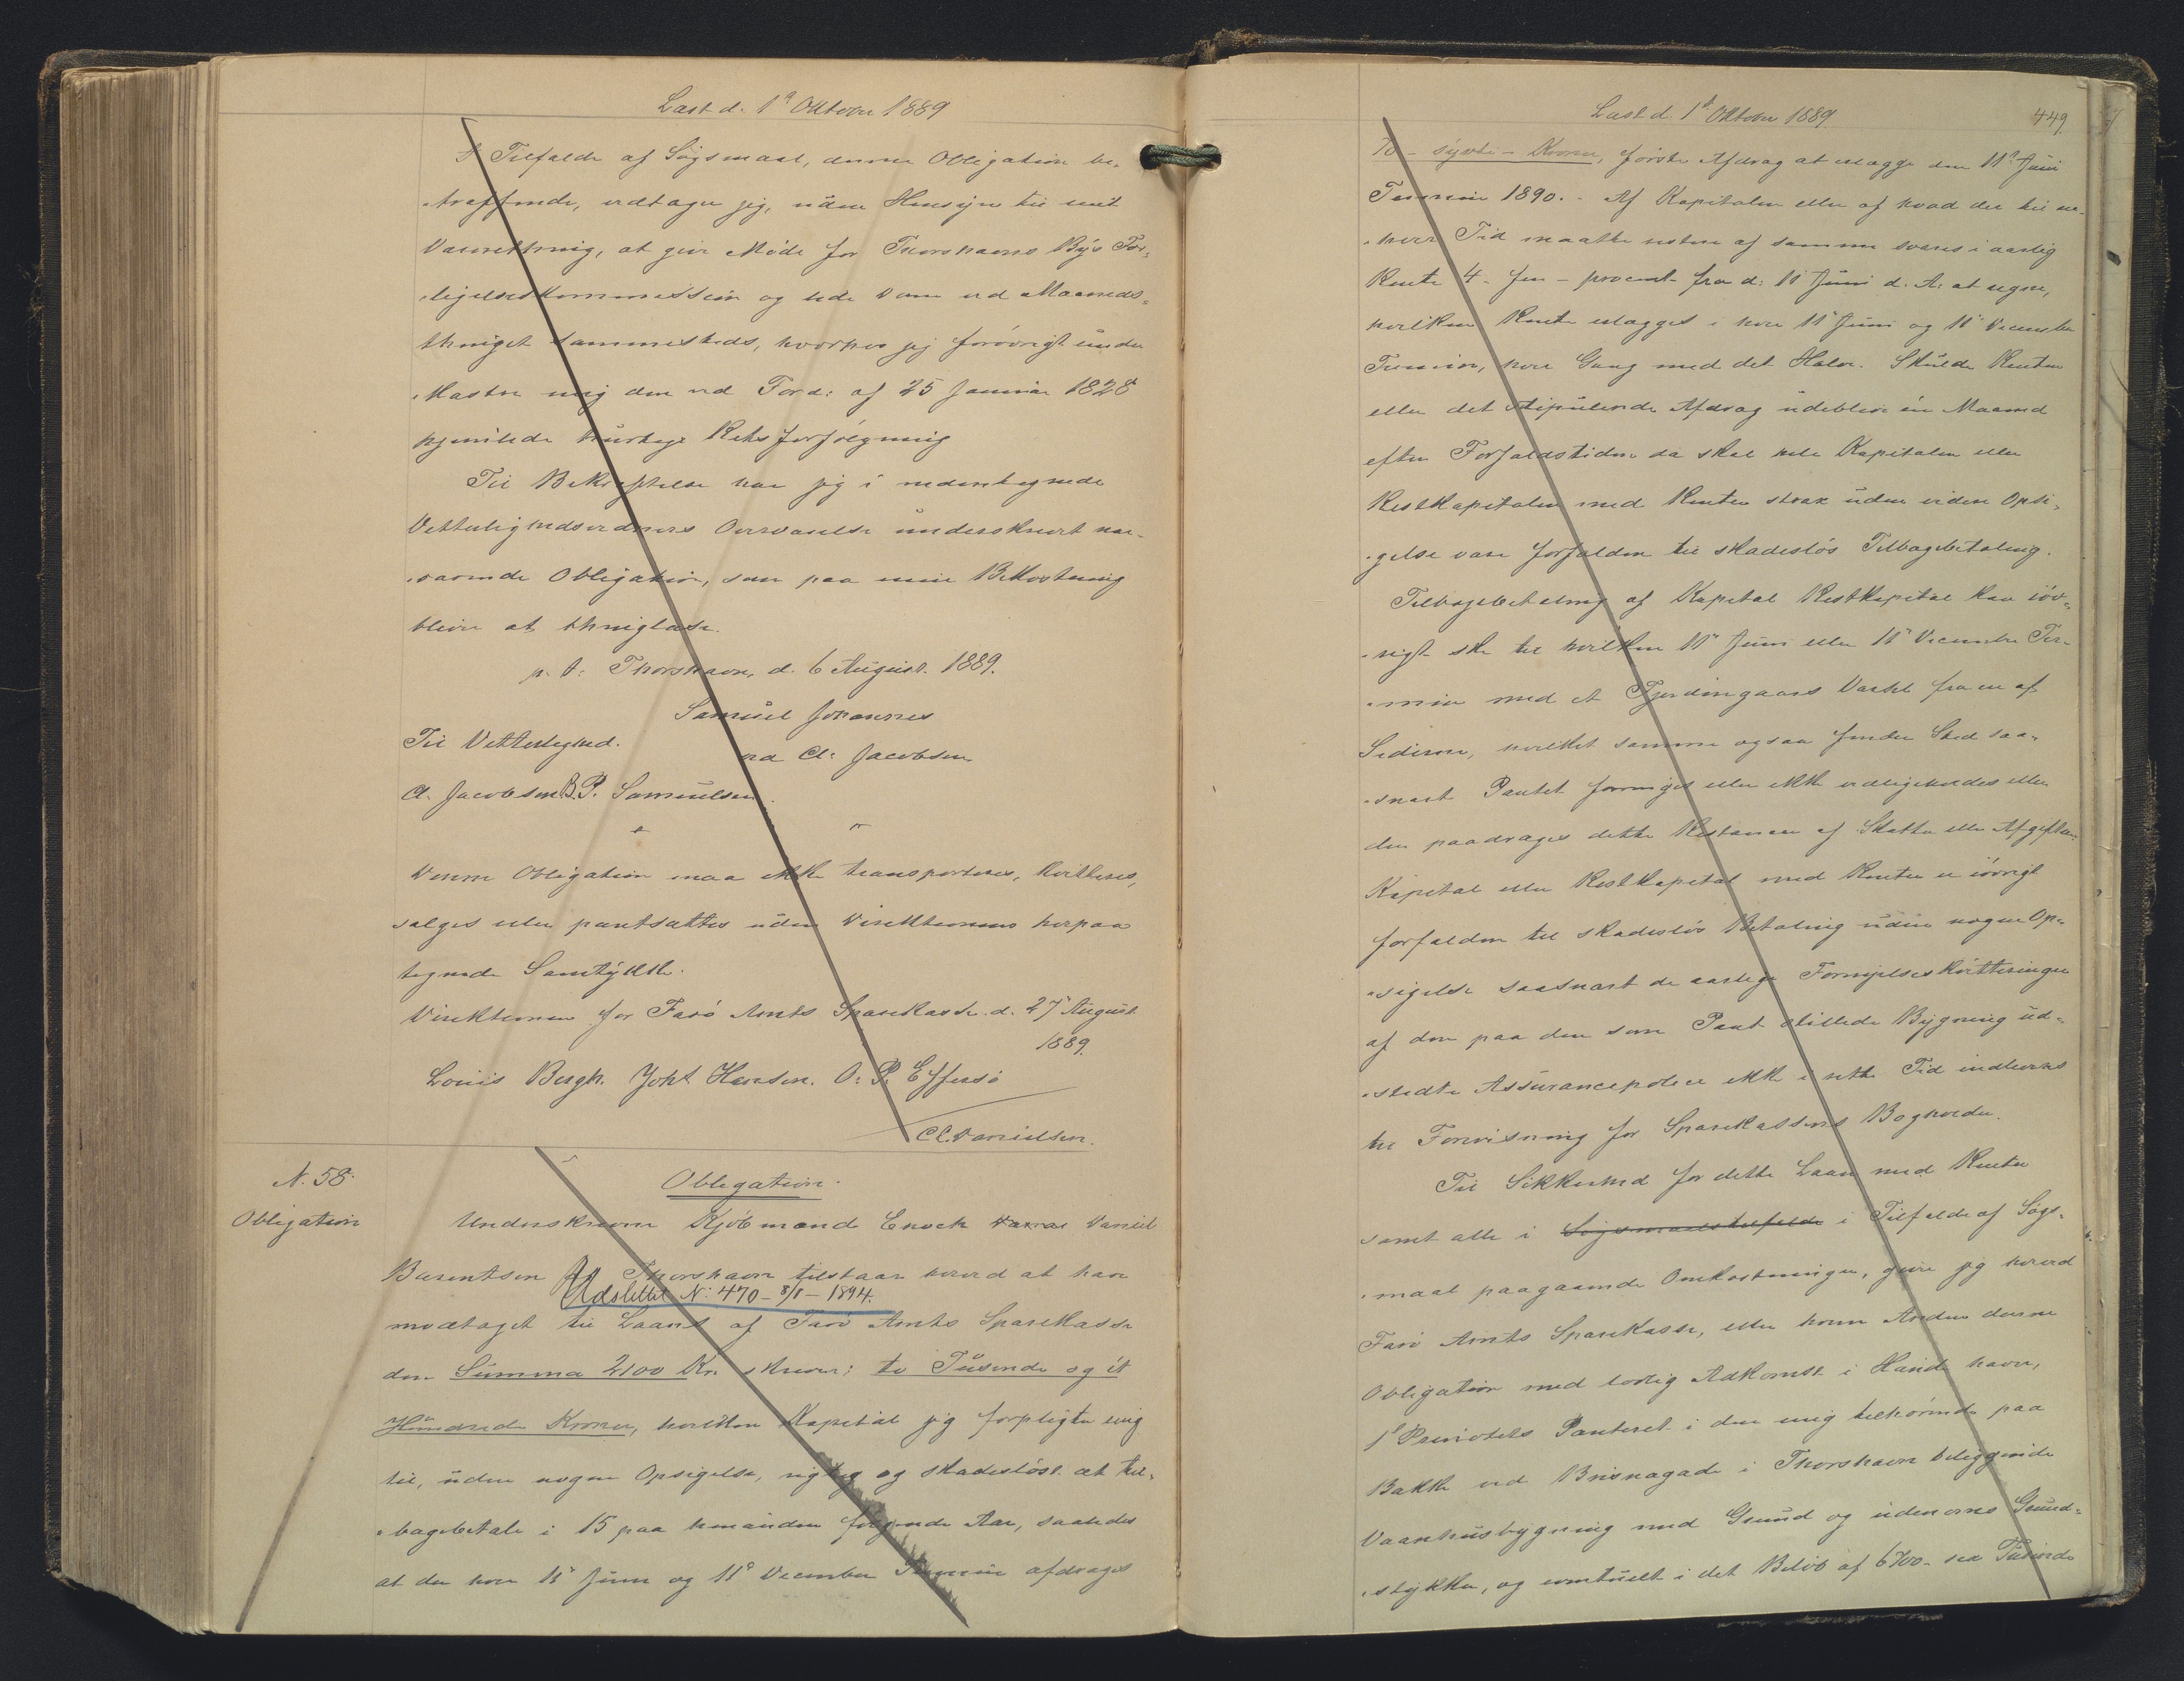 Læst d. 1ᵗ Oktober 1889
I Tilfælde af Søgsmaal, denne Obligation be-
træffende, vedtager jeg, uden Hensyn til mit
Værnething, at give Møde for Thorshavns Bys For-
ligelseskommission og lide Dom ved Maaneds-
thinget sammesteds, hvorhos jeg forøvrigt under
kaster mig den ved Ford: af 25 Januar 1828
hjemlede hurtige Retsforfølgning
Til Bekræftelse har jeg i nedentegnede
Vitterlighedsvidners Overværelse underskrevet nær-
værende Obligation, som paa min Bekostning
bliver at thinglæse.
p. t. Thorshavn, d. 6 August. 1889.
Samuel Johannes
Til Vitterlighed.
ved A. Jacobsen
A. Jacobsen B. P. Samuelsen.
Denne Obligation maa ikke transporteres, kvitteres,
sælges eller pantsættes uden Direktionens herpaa
tegnede Samtykke.
Direktionen for Færø Amts Sparekasse d. 27 August
1889.
Louis Bergh. Joh. Hansen. O. P. Effersø
C. C. Danielsen.
N. 58.
Obligation
Obligation.
Underskrevne Kjøbmand Enock Daniel
Bærentsen af Thorshavn tilstaar herved at have
Udslettet N: 470 - 8/8 - 1894.
modtaget til Laans af Færø Amts Sparekasse
den Summa 2100 Kr. skriver: to Tusinde og ét
Hundrede Kroner, hvilken Kapital jeg forpligter mig
til, uden nogen Opsigelse, rigtig og skadesløst at til-
bagebetale i 15 paa hinanden følgende Aar, saaledes
at der hver 11ᵗ Juni og 11ᵗ December Termin afdrages
Læst d. 1ᵗ Oktober 1889
449
70 - syvti - Kroner, første Afdrag at erlægge den 11ᵗ Juni
Termin 1890. - Af Kapitalen eller af hvad der til en-
hver Tid maatte restere af samme svares i aarlig
Rente 4 - fire - procent fra d. 11 Juni d. A. at regne,
hvilken Rente erlægges i hver 11ᵗ Juni og 11ᵗ December
Termin, hver Gang med det Halve. Skulde Renten
eller det stipulerede Afdrag udeblive én Maaned
efter Forfaldstiden da skal hele Kapitalen eller
Restkapitalen med Renter strax uden videre Opsi-
gelse være forfalden til skadesløs Tilbagebetaling.
Tilbagebetaling af Kapital Restkapital kan iøv-
rigt ske til hvilken 11ᵗ Juni eller 11ᵗ December Ter-
min med et Fjerdingaars Varsel fra en af
Siderne, hvilket samme ogsaa finder Sted saa-
snart Pantet forringes eller ikke vedligeholdes eller
der paadrages dette Restancer af Skatter eller Afgifter.
Kapital eller Restkapital med Renter er iøvrigt
forfalden til skadesløs Betaling uden nogen Op-
sigelse saasnart de aarlige Fornyelseskvitteringer
af den paa den som Pant stillede Bygning ud-
stedte Assurancepolice ikke i rette Tid indleveres
til Forevisning for Sparekassens Bogholder.
Til Sikkerhed for dette Laan med Renter
samt alle i Søgsmaalstilfælde i Tilfælde af Søgs-
maal paagaaende Omkostninger, giver jeg herved
Færø Amts Sparekasse, eller hvem Anden denne
Obligation med lovlig Adkomst i Hænde haver,
1ᵗ Prioritets Panteret i den mig tilhørende paa
Bakke ved Bringnagade i Thorshavn beliggende
Vaanhusbygning med Grund og udenoms Grund-
stykker, og eventuelt i det Beløb af 6700 - sex Tusinde